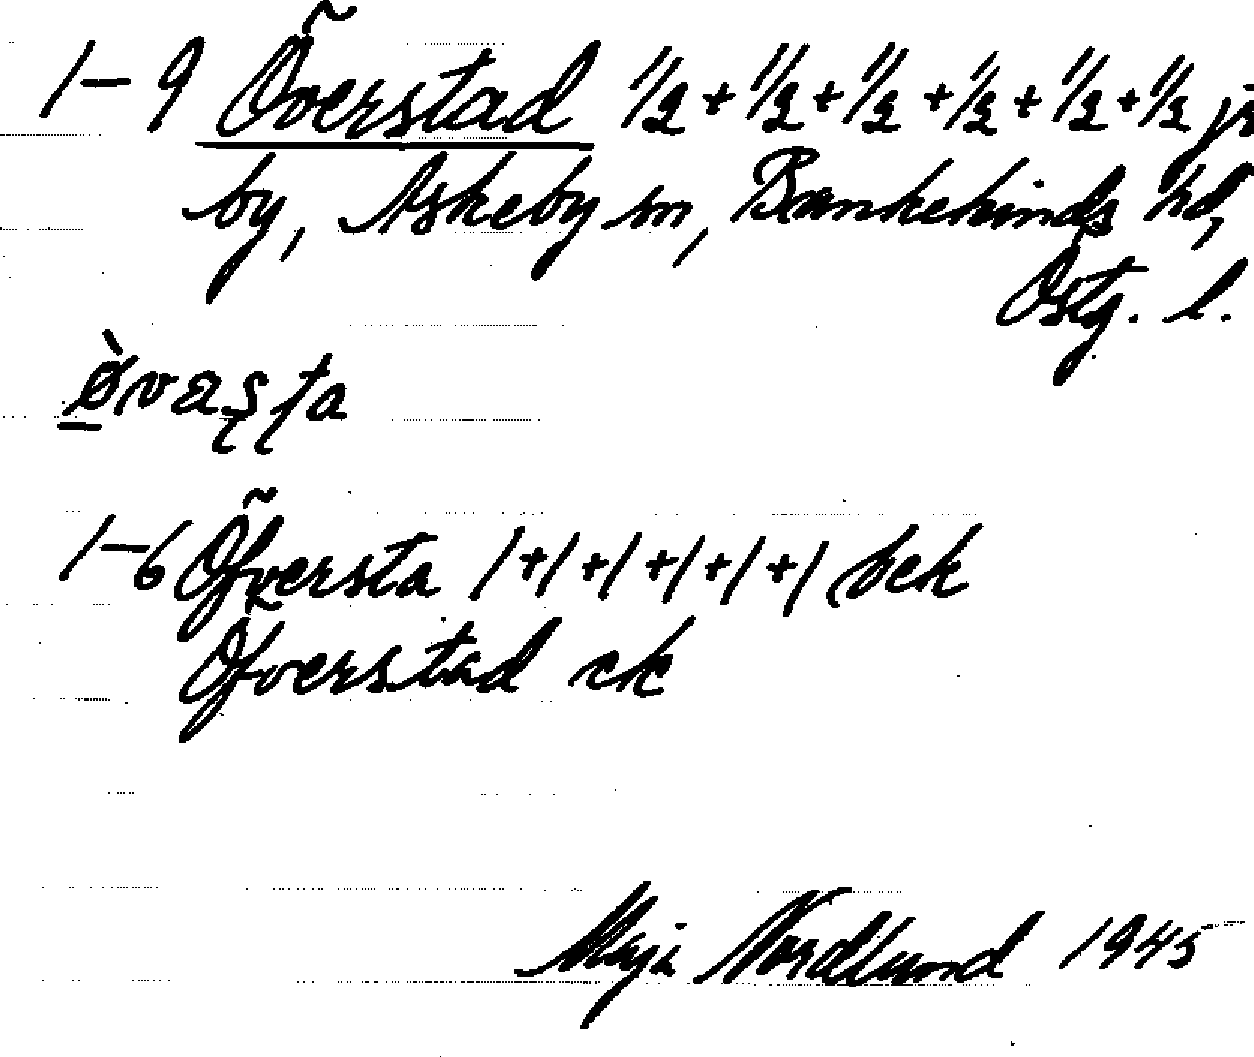 1–9 Överstad 1/2 + 1/2 + 1/2 + 1/2 + 1/2 + 1/2 j
by, Askeby sn, Bankekinds hd,
Östg. l.
1–6 Öfversta 1+1+1+1+1+1 bek
Öfverstad ek
Maja Nordlund 1945